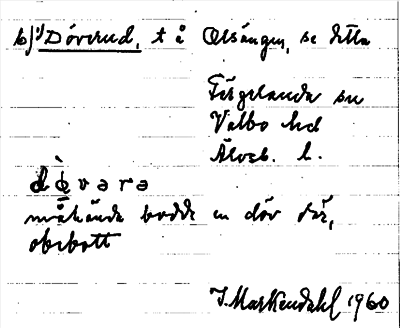 b) 1) Döverud, t å Olsängen, se detta
Färgelanda sn
Valbo hd
Älvsb. l.
dò̤vərə
måhända bodde en döv där,
obebott
I. Markendahl 1960